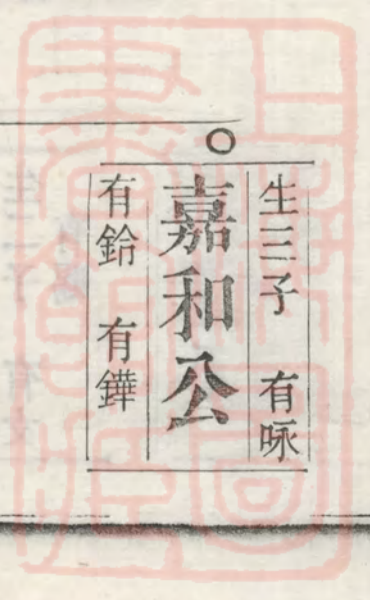 生三子　有咏
嘉和公
有鈴　有鏵